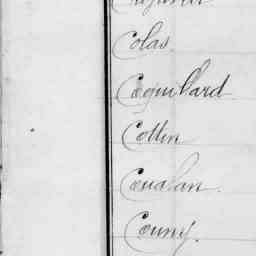 Colas
Coquillard
Collin
Coualan.
Couny.